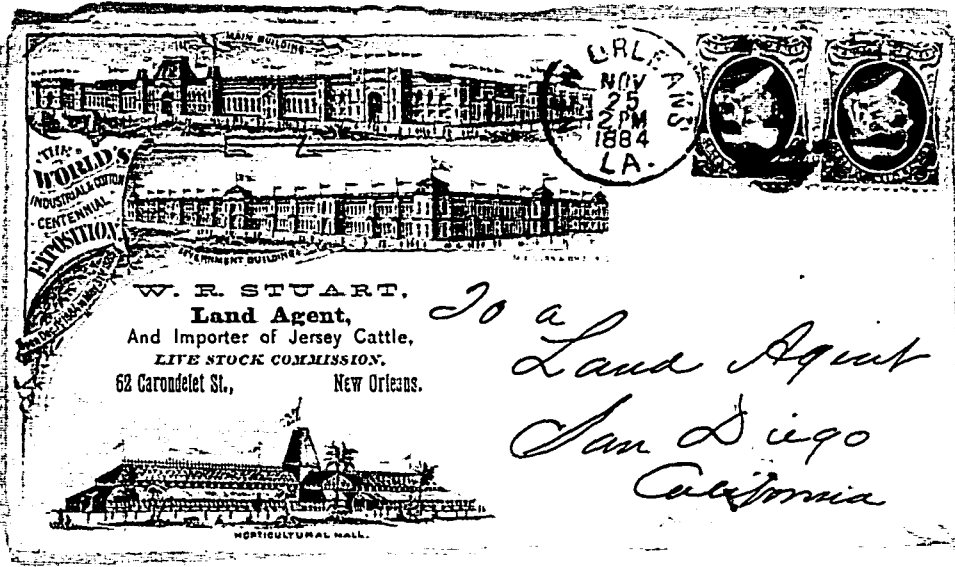 MAIN BUILDING
THE
WORLD'S
INDUSTRIAL & COTTON
CENTENNIAL
EXPOSITION
GOVERNMENT BUILDINGS
ORLEANS
NOV
25
2 PM
1884
LA.
W. R. STUART,
Land Agent,
And Importer of Jersey Cattle,
LIVE STOCK COMMISSION.
62 Carondelet St., New Orleans.
HORTICULTURAL HALL.
To a
Land Agent
San Diego
California